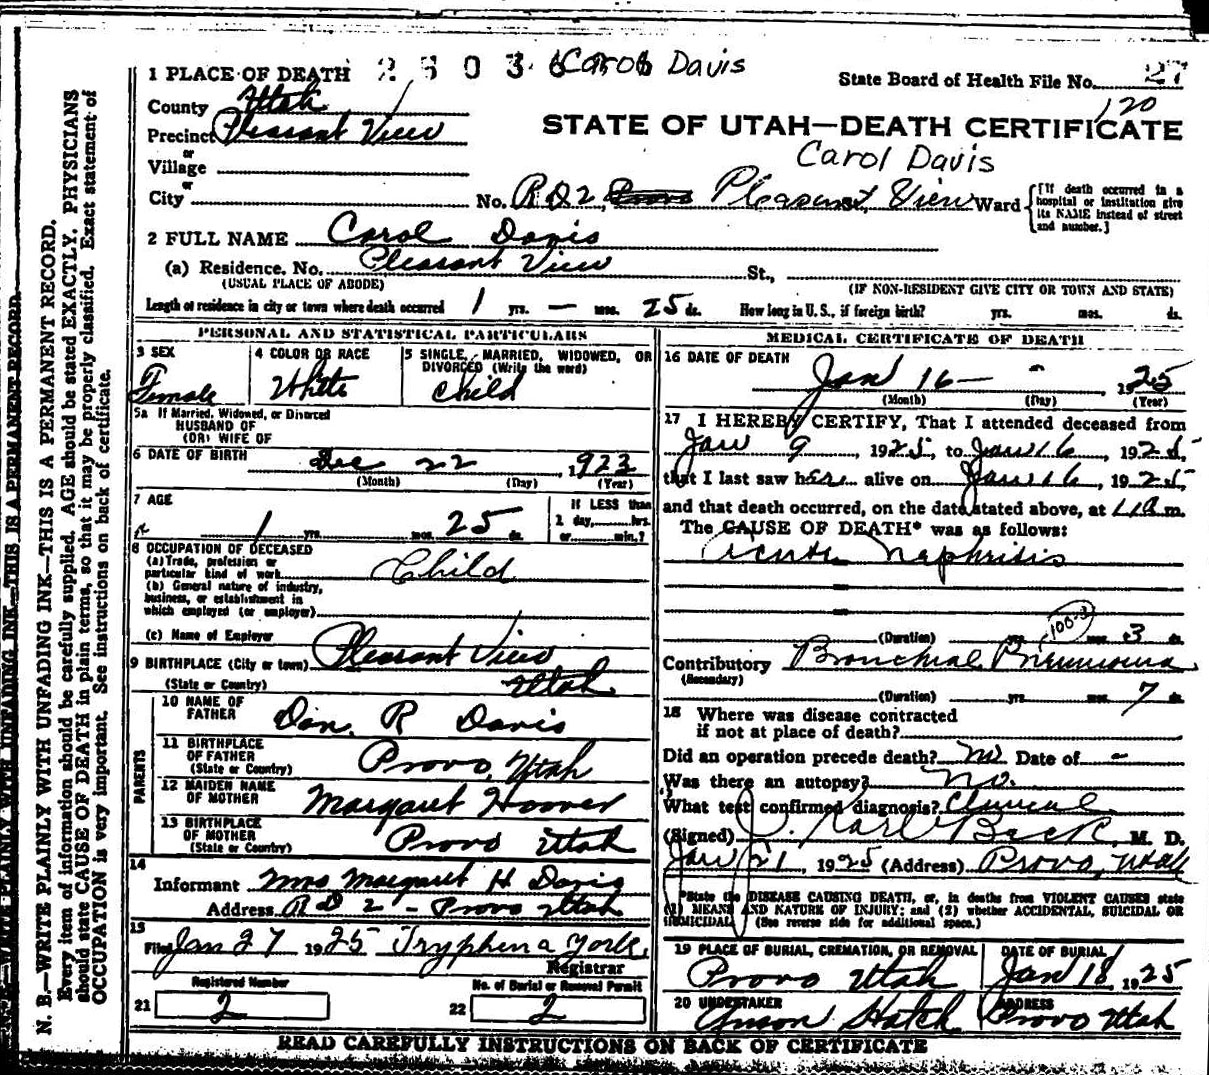 1 PLACE OF DEATH 2503 Carol Davis
State Board of Health File No. 27
120
County Utah
Precinct Pleasant View
STATE OF UTAH—DEATH CERTIFICATE
or
Village
Carol Davis
or
City No. R D 2, Provo Pleasant View Ward
[If death occurred in a hospital or institution give its NAME instead of street and number.]
2 FULL NAME Carol Davis
(a) Residence. No. Pleasant View St.,
(USUAL PLACE OF ABODE) (IF NON-RESIDENT GIVE CITY OR TOWN AND STATE)
Length of residence in city or town where death occurred 1 yrs. — mos. 25 ds. How long in U. S., if foreign birth? yrs. mos. ds.
PERSONAL AND STATISTICAL PARTICULARS
3 SEX
Female
4 COLOR OR RACE
White
5 SINGLE, MARRIED, WIDOWED, OR DIVORCED (Write the word)
Child
5a If Married, Widowed, or Divorced
HUSBAND OF
(OR) WIFE OF
6 DATE OF BIRTH Dec 22, 1923
(Month) (Day) (Year)
7 AGE
1 yrs. mos. 25 ds.
If LESS than
1 day, hrs.
or min.?
8 OCCUPATION OF DECEASED
(a) Trade, profession or
particular kind of work Child
(b) General nature of industry,
business, or establishment in
which employed (or employer)
(c) Name of Employer
9 BIRTHPLACE (City or town) Pleasant View
(State or Country) Utah
PARENTS
10 NAME OF
FATHER Don. R Davis
11 BIRTHPLACE
OF FATHER
(State or Country) Provo, Utah
12 MAIDEN NAME
OF MOTHER Margaret Hoover
13 BIRTHPLACE
OF MOTHER
(State or Country) Provo Utah
14
Informant Mrs Margaret H Davis
Address R D 2 - Provo Utah
15
Filed Jan 27 1925 Tryphena York
Registrar
Registered Number
21 2
No. of Burial or Removal Permit
22 2
MEDICAL CERTIFICATE OF DEATH
16 DATE OF DEATH
Jan 16 — 1925
(Month) (Day) (Year)
17 I HEREBY CERTIFY, That I attended deceased from
Jan 9, 1925, to Jan 16, 1925,
that I last saw her alive on Jan 16, 1925,
and that death occurred, on the date stated above, at 11 a m.
The CAUSE OF DEATH* was as follows:
Acute Nephritis
(Duration) yrs. mos. 3 ds.
Contributory Bronchial Pneumonia
(Secondary)
(Duration) yrs. mos. 7 ds.
18 Where was disease contracted
if not at place of death?
Did an operation precede death? No Date of -
Was there an autopsy? No.
What test confirmed diagnosis? Clinical
(Signed) J. Karl Beck, M. D.
Jan 21, 1925 (Address) Provo, Utah
*State the DISEASE CAUSING DEATH, or, in deaths from VIOLENT CAUSES state
(1) MEANS AND NATURE OF INJURY; and (2) whether ACCIDENTAL, SUICIDAL OR
HOMICIDAL. (See reverse side for additional space.)
19 PLACE OF BURIAL, CREMATION, OR REMOVAL
Provo Utah
DATE OF BURIAL
Jan 18, 1925
20 UNDERTAKER
Anson Hatch
ADDRESS
Provo Utah
READ CAREFULLY INSTRUCTIONS ON BACK OF CERTIFICATE
WRITE PLAINLY WITH UNFADING INK—THIS IS A PERMANENT RECORD.
N. B.—WRITE PLAINLY WITH UNFADING INK—THIS IS A PERMANENT RECORD.
Every item of information should be carefully supplied. AGE should be stated EXACTLY. PHYSICIANS
should state CAUSE OF DEATH in plain terms, so that it may be properly classified. Exact statement of
OCCUPATION is very important. See instructions on back of certificate.